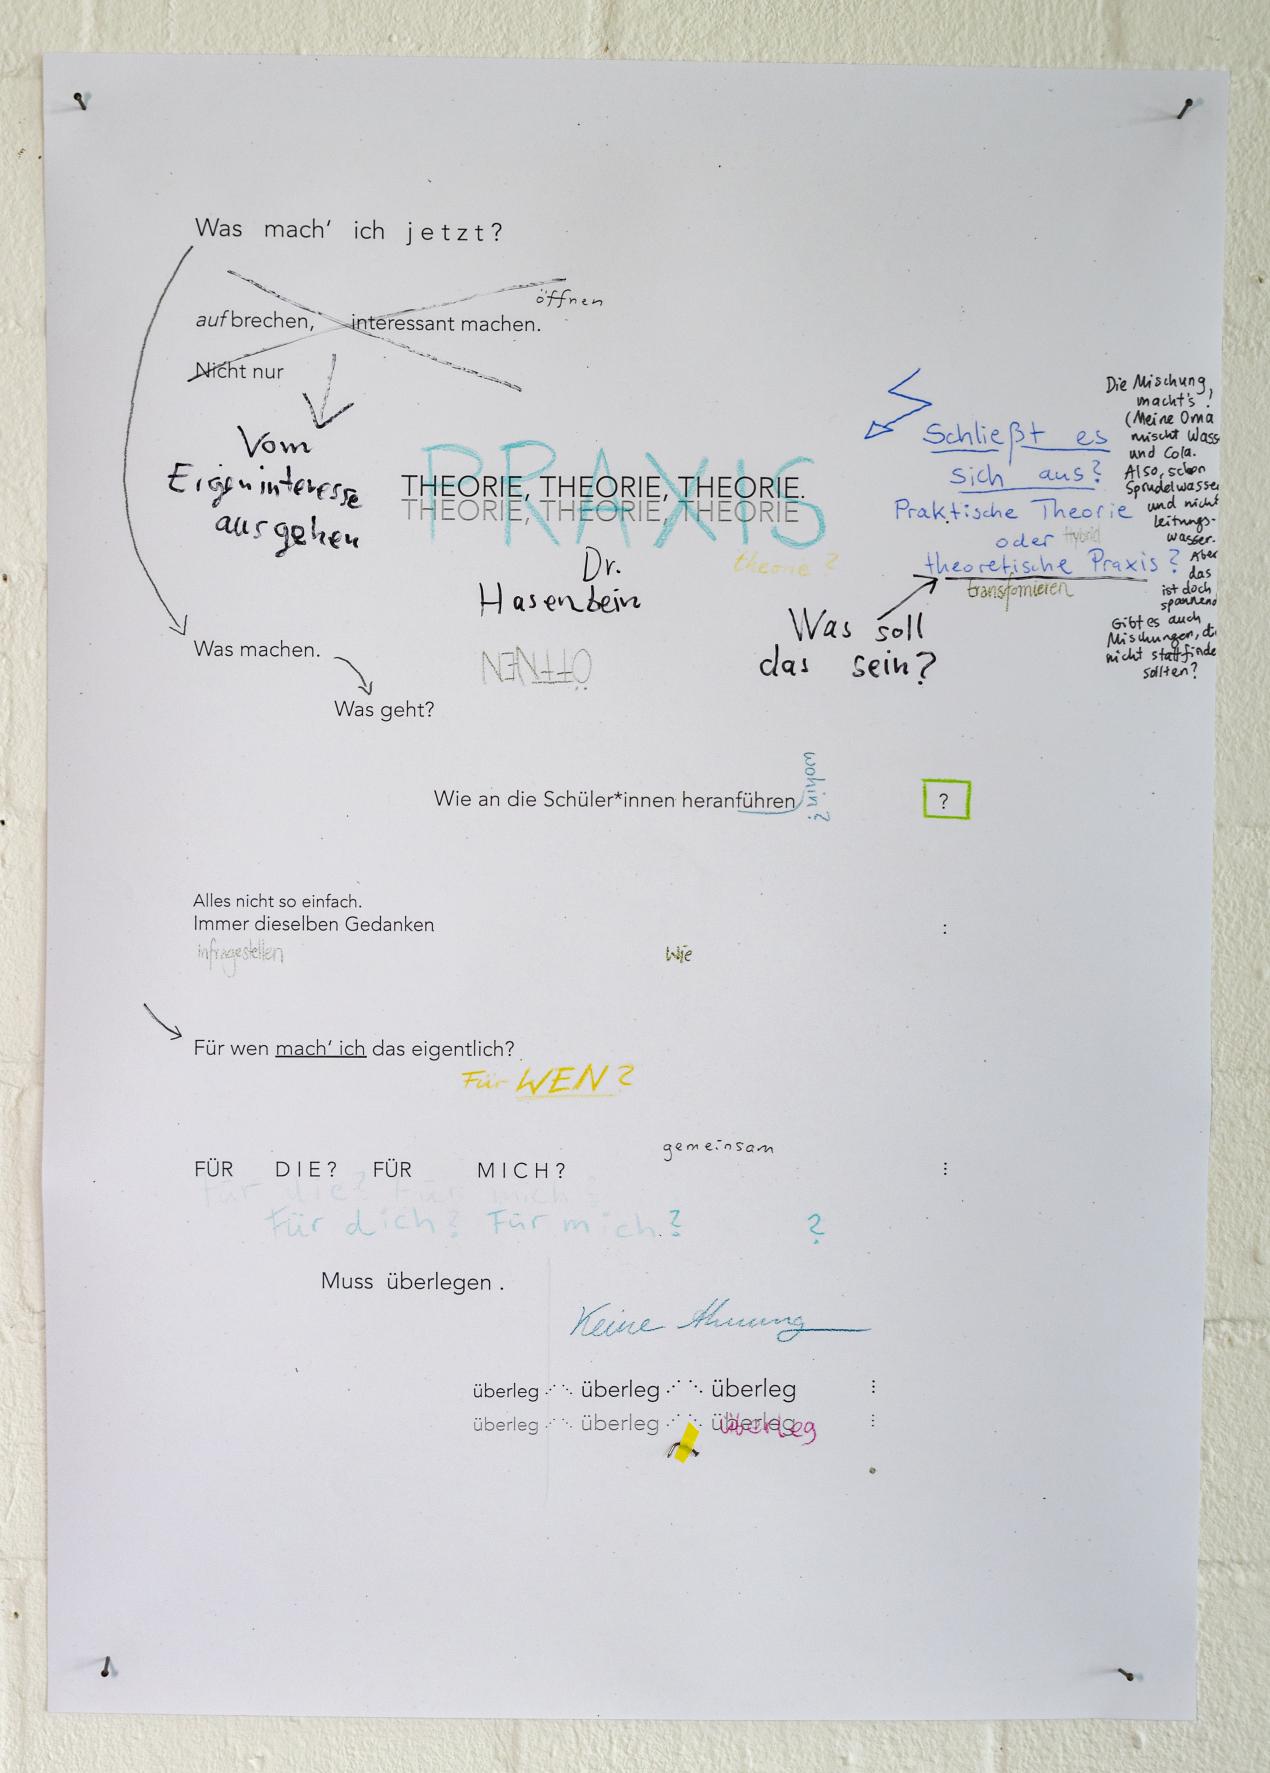 Was mach' ich jetzt?
öffnen
aufbrechen, interessant machen.
Nicht nur
Vom
Eigeninteresse
ausgehen
PRAXIS
THEORIE, THEORIE, THEORIE.
THEORIE, THEORIE, THEORIE
theorie?
Dr.
Hasenbein
ÖFFNEN
Schließt es
sich aus?
Praktische Theorie
oder Hybrid
theoretische Praxis?
transformieren
Was soll
das sein?
Die Mischung
macht's!
(Meine Oma
mischt Wass
und Cola.
Also, schon
Sprudelwasser
und nicht
leitungs-
wasser.
Aber
das
ist doch
spannend
Gibt es auch
Mischungen, di
nicht stattfinde
sollten?
Was machen.
Was geht?
Wie an die Schüler*innen heranführen
wohin?
?
Alles nicht so einfach.
Immer dieselben Gedanken
:
infragestellen
Wie
Für wen mach' ich das eigentlich?
Für WEN?
gemeinsam
FÜR DIE? FÜR MICH?
Für die? Für mich?
Für dich? Für mich? ?
Muss überlegen .
Keine Ahnung
überleg überleg überleg
überleg überleg überleg
überleg